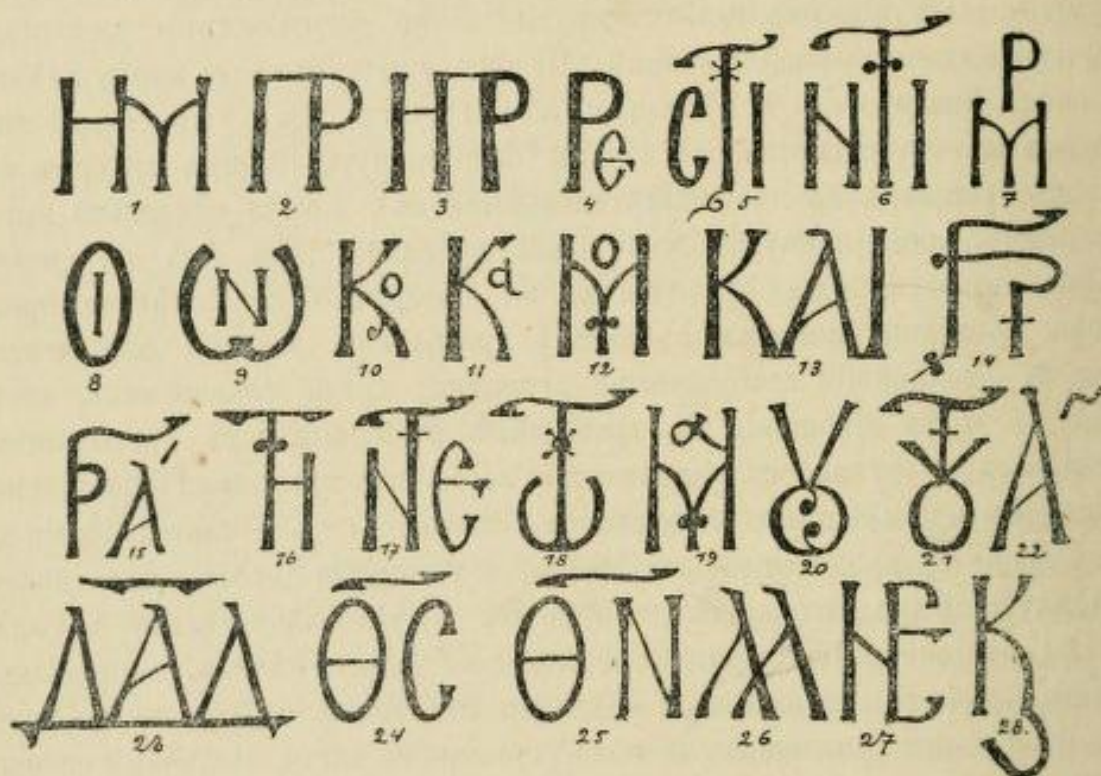 ΗΜ ΠΡ ΗΡ Ρε CΤΙ ΝΤΙ ΡΜ
1 2 3 4 5 6 7
ΟΙ ѠΝ Κο Κα ΜΟ ΚΑΙ
8 9 10 11 12 13 14
ΡΆ ΤΗ ΝΤΕ ΤѠ Μα ΟΥ ΤΟΥ Α
15 16 17 18 19 20 21 22
ΔΑΔ ΘC ΘΝ ΛΛ ΗΕ Κ
23 24 25 26 27 28.